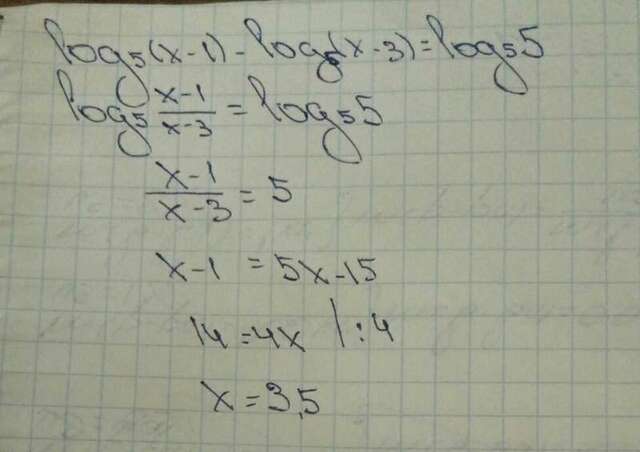 log₅(x-1) - log₅(x-3) = log₅5
log₅ (x-1)/(x-3) = log₅5
(x-1)/(x-3) = 5
x-1 = 5x-15
14 = 4x | :4
x = 3,5